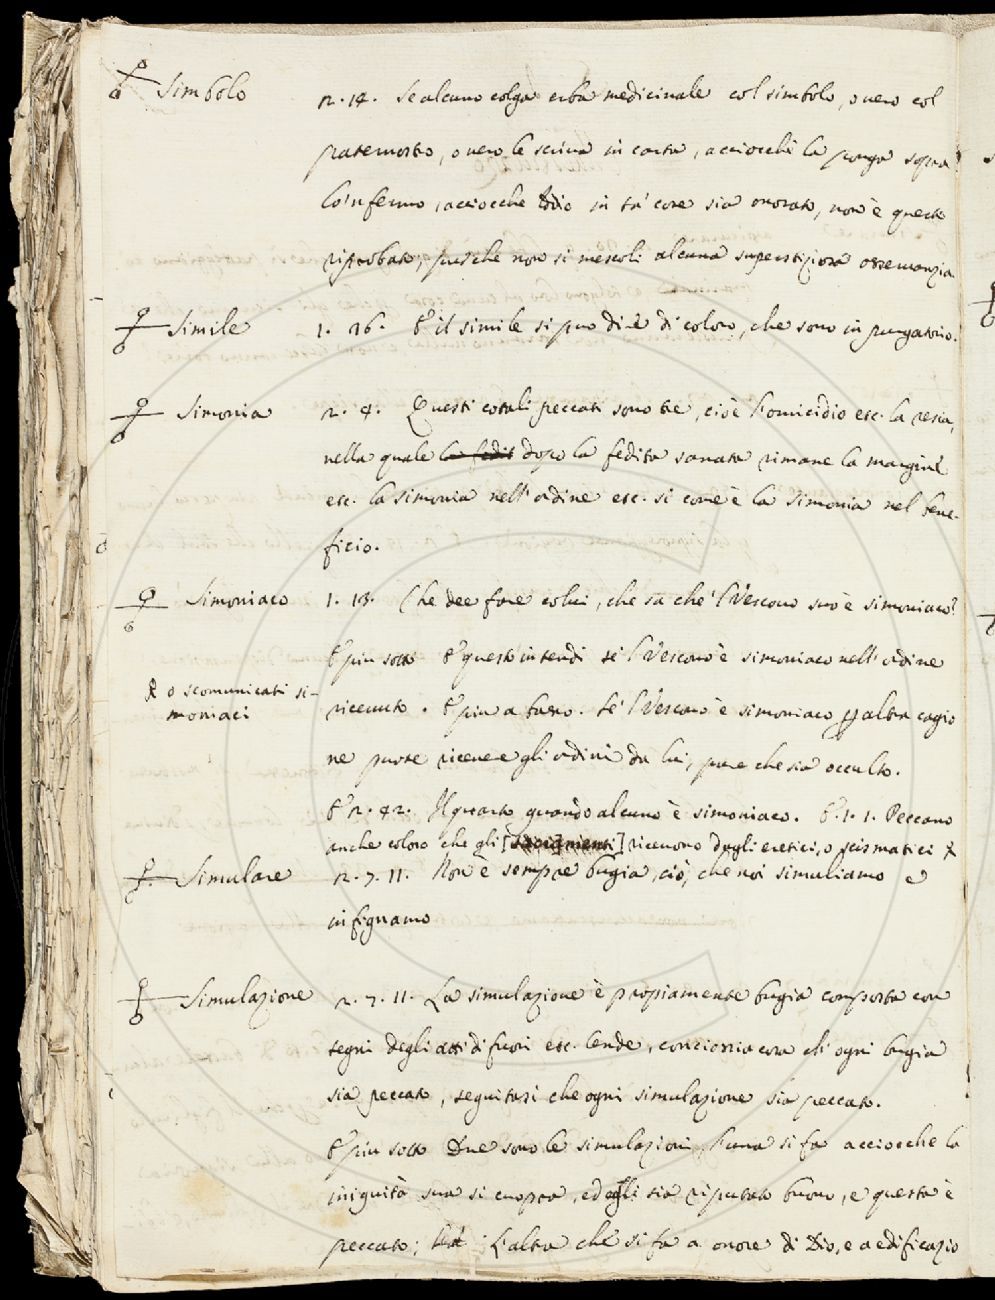 Simbolo 2. 14. Se alcuno colga erba medicinale col simbolo, overo col
paternostro, overo le scriva in carta, acciocchè la ponga sopra
lo'nfermo, acciocche Iddio in ta' cose sia onorato, non è questo
riprobato, pursche non si mescoli alcuna superstiziosa osservanzia
Simile 1. 26. E il simile si puo dire di coloro, che sono in purgatorio.
Simonia 2. 4. Questi cotali peccati sono tre, cioè l'omicidio etc. la resia,
nella quale la fedit dopo la fedita sanata rimane la margine
etc. la simonia nell'ordine etc. si come è la simonia nel bene-
ficio.
Simoniaco 1. 13. Che dee fare colui, che sa che'l Vescovo suo è simoniaco?
E piu sotto E questo intendi se'l Vescovo è simoniaco nell'ordine
ricevuto. E piu a basso. Se'l Vescovo è simoniaco p altra cagio
ne puote ricevere gli ordini da lui, pure che sia occulto.
E 2. 42. Il quarto quando alcuno è simoniaco. E. 1. 1. Peccano
anche coloro che gli [sacramenti] ricevono dagli eretici, o scismatici
o scomunicati si-
moniaci
Simulare 2. 7. 11. Non è sempre bugia, ciò, che noi simuliamo e
infignamo
Simulazione 2. 7. 11. La simulazione è propiamente bugia composta con
segni degli atti di fuori etc. Onde, conciossia cosa ch'ogni bugia
sia peccato, seguitasi che ogni simulazione sia peccato.
E piu sotto Due sono le simulazioni, l'una si fa acciocche la
iniquità sua si cuopra, ed egli sia riputato buono, e questa è
peccato; L'altra che si fa a onore di Dio, e a edificazio